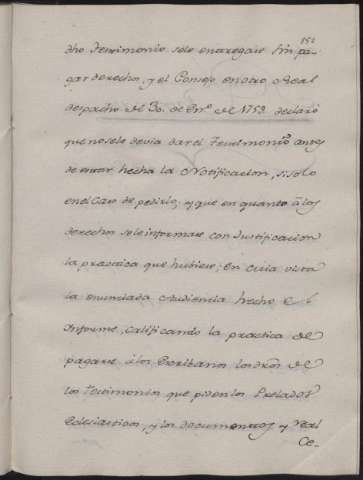 151
dho Testimonio sele entregase sin pa-
gar derechos, y el Consejo en otro Real
despacho de 30. de En.º de 1759. declaró
que nosele devia dar el Testimonio antes
de estar hecha la Notificacion, si solo
en el Caso de pedirlo; y que en quanto â los
derechos sele informase con Justificacion
la practica que hubiese; En cuia vista
la enunciada Audiencia hecho el
Informe, calificando la practica de
pagarse â los Escribanos los dros de
los Testimonios que piden los Prelados
Eclesiasticos, y los documentos y Real
Ce-